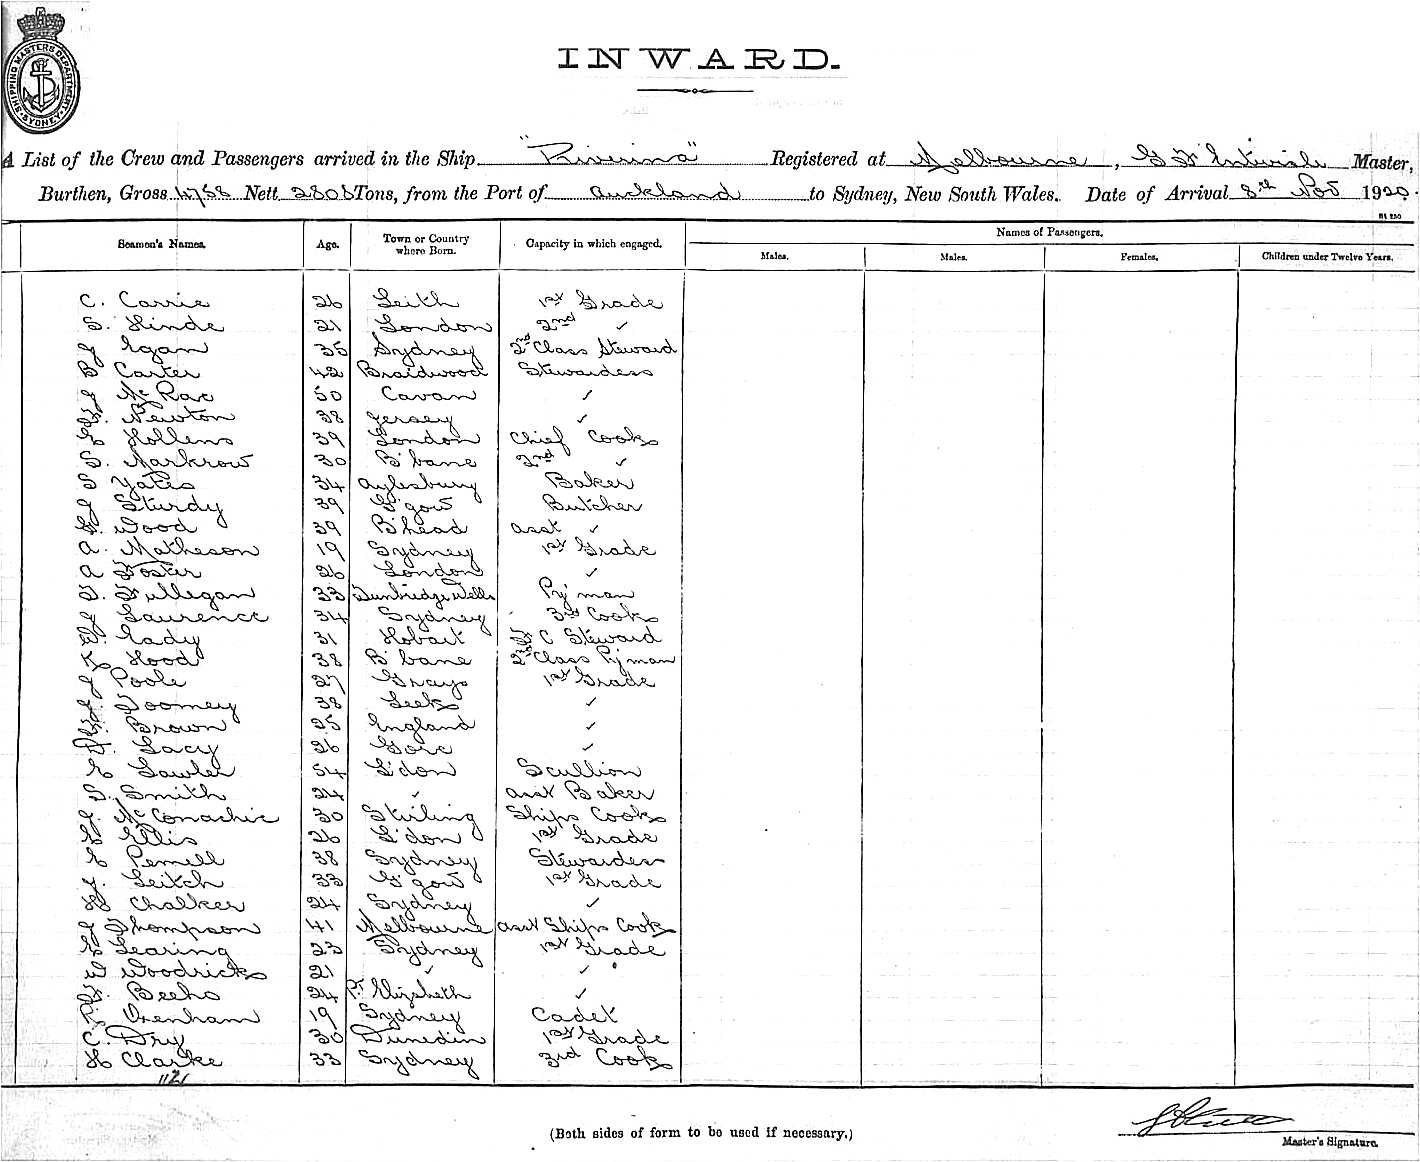 SHIPPING MASTERS DEPARTMENT
SYDNEY
INWARD.
A List of the Crew and Passengers arrived in the Ship "Riverina" Registered at Melbourne, Master,
Burthen, Gross 4758 Nett 2805 Tons, from the Port of Auckland to Sydney, New South Wales. Date of Arrival 8th Nov 1920.
Seamen's Names. Age. Town or Country where Born. Capacity in which engaged. Names of Passengers.
Males. Males. Females. Children under Twelve Years.
C. Carrie 26 Leith 1st Grade
S. Hinde 21 London 2nd ✓
J Egan 35 Sydney 2nd Class Steward
B Carter 42 Braidwood Stewardess
J McRae 50 Cavan ✓
Newton 38 Jersey ✓
E Hollens 39 London Chief Cook
S. Narkrow 30 B'bane 2nd ✓
S Yates 34 Aylesbury Baker
J Sturdy 39 G'gow Butcher
Wood 39 B'head asst ✓
A. Matheson 19 Sydney 1st Grade
A Foster 26 London ✓
33 Tunbridge Wells Py man
J Laurence 34 Sydney 3rd Cook
Eady 31 Hobart C Steward
Hood 38 B'bane 2nd Class Py man
J Poole 27 Grays 1st Grade
J. Toomey 38 Leek ✓
Brown 25 England ✓
Lacy 26 Gore ✓
E Lawler 54 L'don Scullion
S. Smith 24 ✓ asst Baker
J. McConachie 30 Stirling Ships Cook
E Ellis 26 L'don 1st Grade
E Pemell 38 Sydney Stewardess
J. Leitch 33 G'gow 1st Grade
H Chalker 24 Sydney ✓
J Thompson 41 Melbourne asst Ships Cook
E Gearing 23 Sydney 1st Grade
W Woodricks 21 ✓ ✓
Beeho 24 Pt Elizabeth ✓
Orenham 19 Sydney Cadet
C. Dry 30 Dunedin 1st Grade
H Clarke 33 Sydney 3rd Cook
(Both sides of form to be used if necessary.)
Master's Signature.